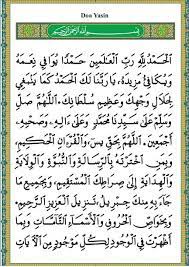 Doa Yasin
بسم الله الرحمن الرحيم
اَلْحَمْدُ لِلّٰهِ رَبِّ الْعَالَمِيْنَ حَمْدًا يُوَافِيْ نِعَمَهُ
وَيُكَافِئُ مَزِيْدَهُ، يَا رَبَّنَا لَكَ الْحَمْدُ كَمَا يَنْبَغِيْ
لِجَلَالِ وَجْهِكَ وَعَظِيْمِ سُلْطَانِكَ. اَللّٰهُمَّ صَلِّ
وَسَلِّمْ عَلَى سَيِّدِنَا مُحَمَّدٍ وَعَلَى آلِهِ، وَصَحْبِهِ،
أَجْمَعِيْنَ. اَللّٰهُمَّ بِحَقِّ يٰسۤ، وَالْقُرْآنِ الْحَكِيْمِ،
وَبِمَنِ اخْتَرْتَهُ بِالرِّسَالَةِ وَالنُّبُوَّةِ وَالْوِلَايَةِ
وَالْهِدَايَةِ إِلَى صِرَاطِكَ الْمُسْتَقِيْمِ، وَبِجَمِيْعِ مَا
تَنْزِيْلَ الْعَزِيْزِ الرَّحِيْمِ
وَبِخَوَاصِّ الْحُرُوْفِ وَالْأَسْمَاءِ التَّامَّاتِ وَبِمَا
أَظْهَرْتَ فِي الْوُجُوْدِ لِكُلِّ مَوْجُوْدٍ مِنَ الْآيَاتِ